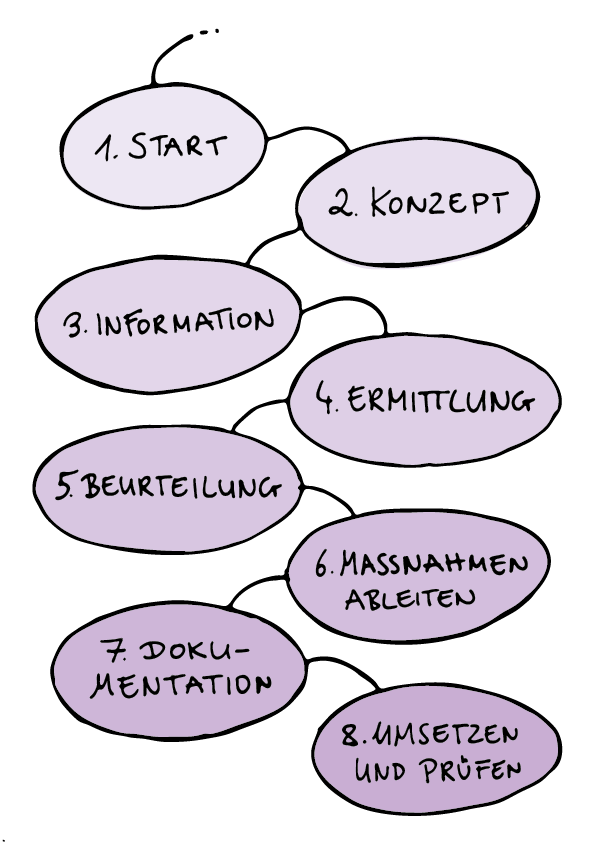 1. START
2. KONZEPT
3. INFORMATION
4. ERMITTLUNG
5. BEURTEILUNG
6. MASSNAHMEN
ABLEITEN
7. DOKU-
MENTATION
8. UMSETZEN
UND PRÜFEN